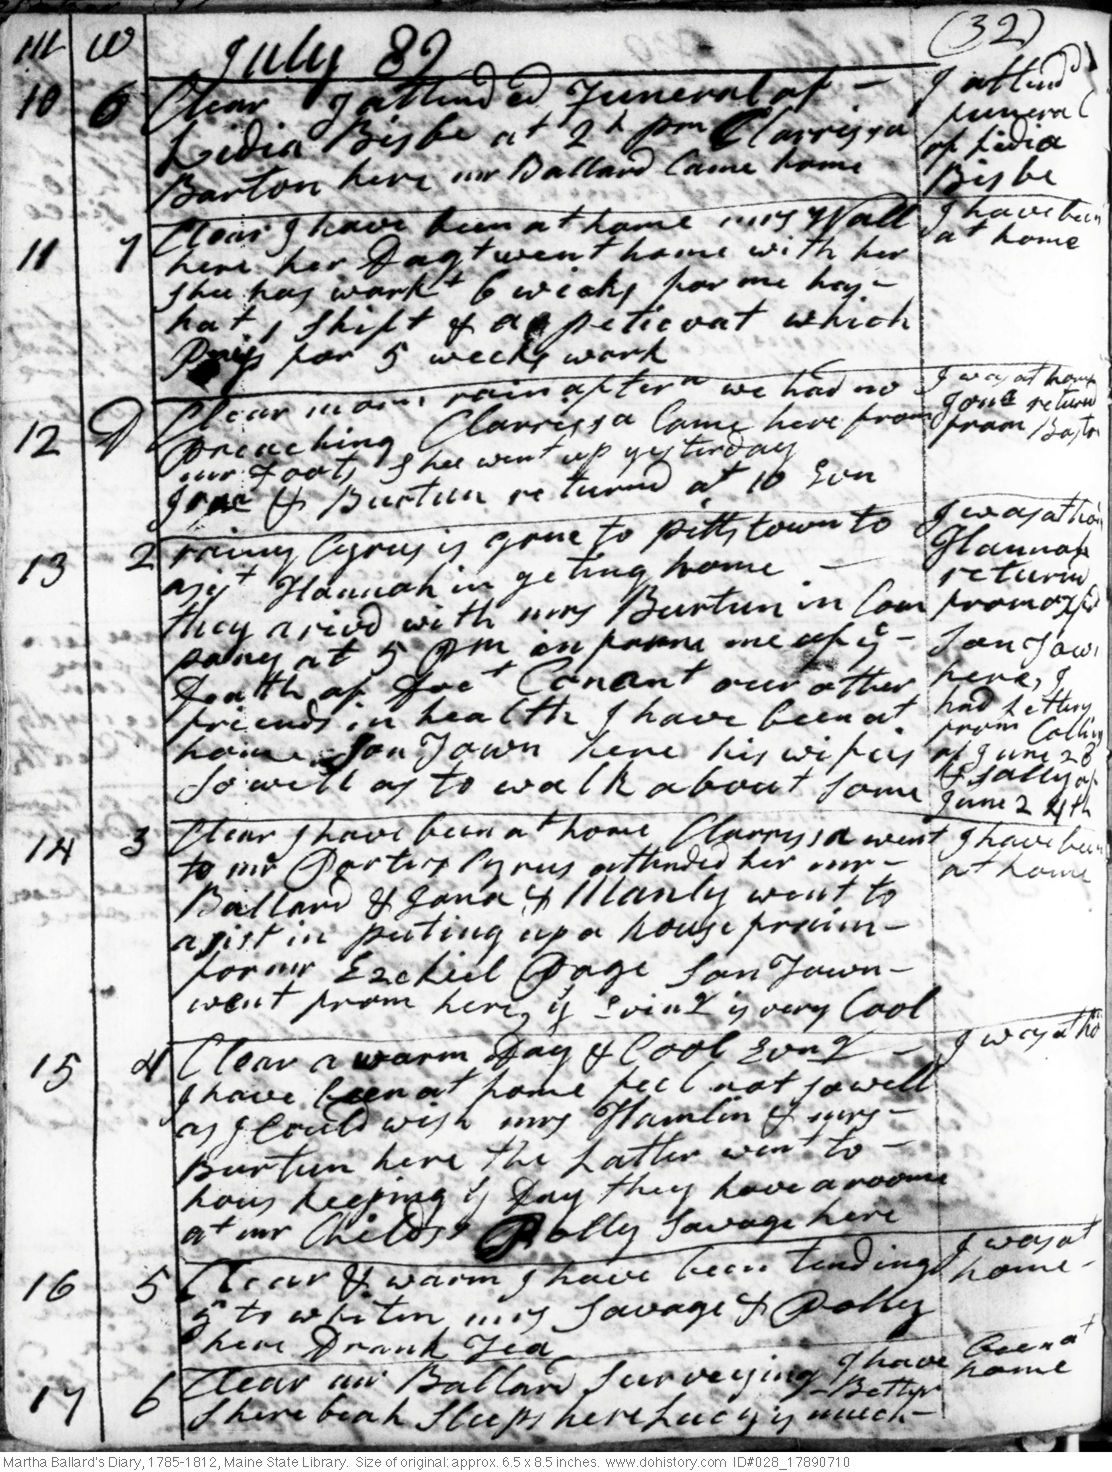 M W July 89 (32)
10 6 Clear I attended Funeral of -
Lidia Bisbe at 2 h pm Clarrissa
Barton here mr Ballard Came home
I attend
funeral
of Lidia
Bisbe
11 7 Clear I have been at home mrs Wall
here her Dagt went home with her
shee has workt 6 wicks for me has -
hat, shift & a peticoat which
Pays for 5 weeks work
I have been
at home
12 D Clear morn rain aftern we had no
preaching Clarrissa Came here from
mr Foots, shee went up yesterday
Jona & Burtun returnd at 10 Evn
I was at home
Jona returnd
from Bosto
13 2 rainy Cyrus is gone to Pittstown to
asist Hannah in geting home -
they arivd with mrs Burtun in Com
pany at 5 Pm inform me of ye -
Death of Doct Conant our other
friends in health I have been at
home. Son Town here his wife is
So well as to walk about Some
I was at ho
Hannah
returnd
from oxfd
Son Town
here, I
had Letters
from Collins
of June 28
& Sally of
June 24th
14 3 Clear I have been at home Clarrissa went
to mr Porters Cyrus attended her mr -
Ballard & Jona & Manly went to
asist in puting up a house fraim -
for mr Ezekiel Page Son Town -
went from here, ye Evin g is very Cool
I have been
at home
15 4 Clear a warm Day & Cool Evng -
I have been at home feel not so well
as I Could wish mrs Hamlin & mrs -
Burtun here the Latter went to -
hous keeping ys Day they have a room
at mr Childs Polly Savage here
I was at ho
16 5 Clear & warm I have been tending
to whiten mrs Savage & Polly
here Drank Tea
I was at
home -
17 6 Clear mr Ballard Surveying I have
Been at
home
Sherebiah Sleeps here Lucy is much -
Better
Martha Ballard's Diary, 1785-1812, Maine State Library. Size of original: approx. 6.5 x 8.5 inches. www.dohistory.com ID#028_17890710